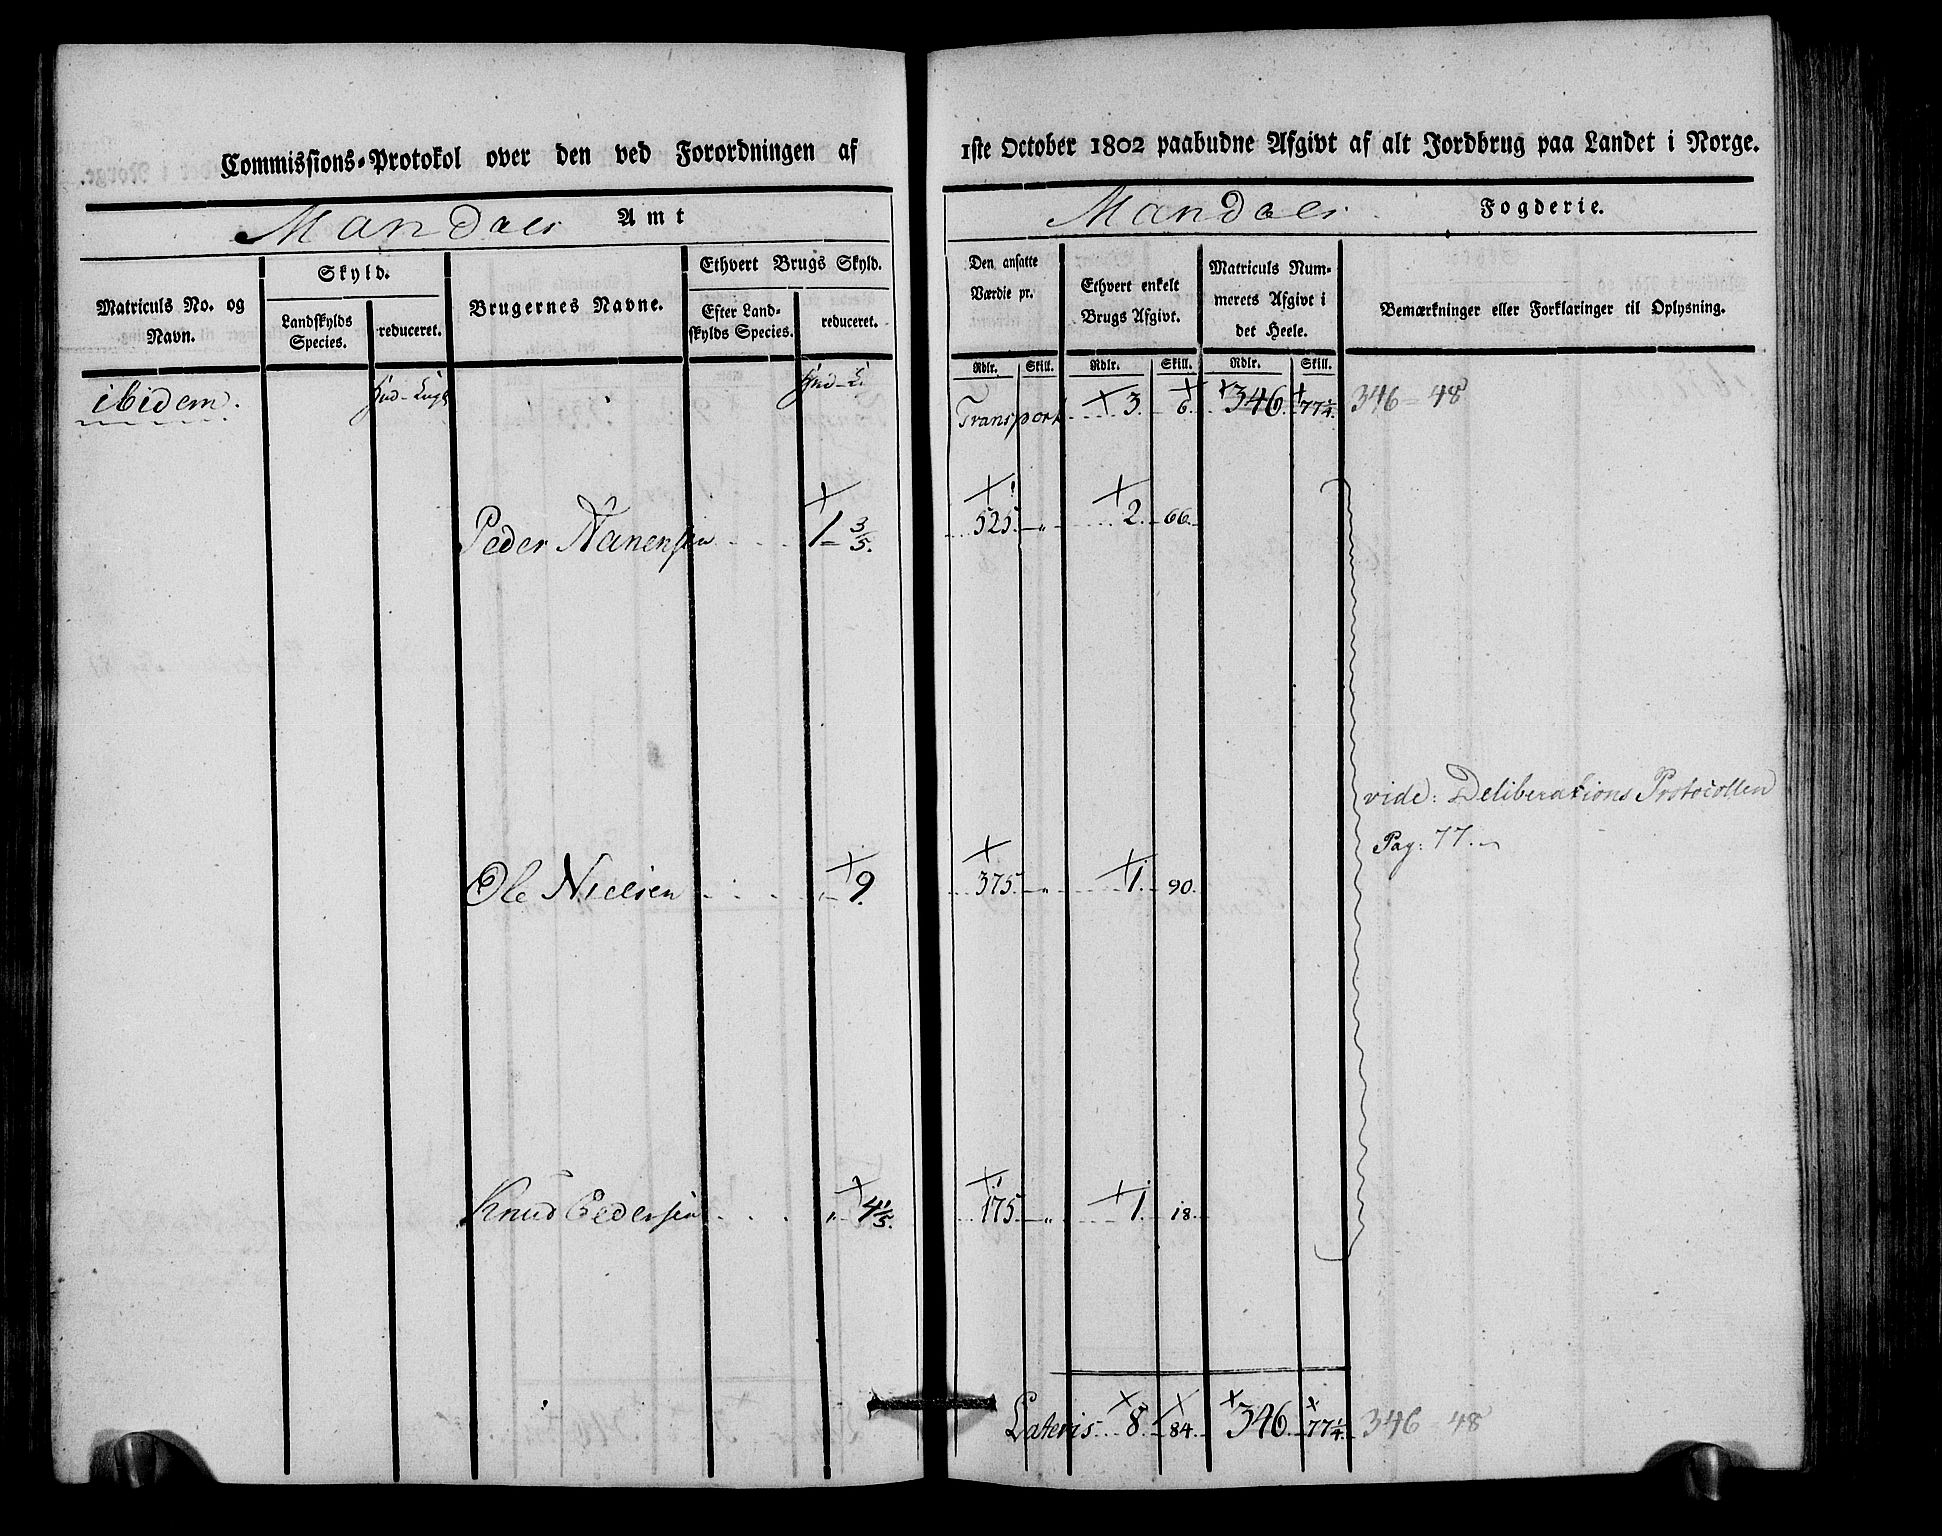 Commissions-Protokol over den ved Forordningen af 1ste October 1802 paabudne Afgivt af alt Jordbrug paa Landet i Norge.
Mandals Amt
Mandals Fogderie.
Matriculs No. og Navn.
Skyld.
Landskylds Species.
reduceret.
Brugernes Navne.
Ethvert Brugs Skyld.
Efter Landskylds Species.
reduceret.
Den ansatte Værdie pr.
Rdlr. Skill.
Ethvert enkelt Brugs Afgivt.
Rdlr. Skill.
Matriculs Nummerets Afgivt i det Heele.
Rdlr. Skill.
Bemærkninger eller Forklaringer til Oplysning.
ibidem. Transport 3. 6. 346. 77 1/4. 346 = 48
Peder Nanensen 1 - 3/5. 525. " 2. 66.
vide: Deliberations Protocollen
Pag: 77.
Ole Nielsen " 9. 375. " 1. 90.
Knud Pedersen " 4 1/5. 175 " 1. 18.
Lateris 8. 84. 346. 77 1/4. 346 = 48